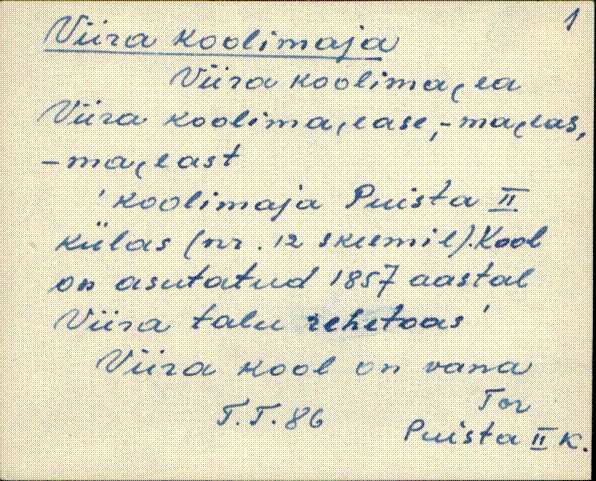 1
Viira koolimaja
Viira koolima,ea
Viira koolima,ease, -ma,eas,
-ma,east
'koolimaja Puista II
külas (nr. 12 skeemil). Kool
on asutatud 1857 aastal
Viira talu rehetoas'
Viira kool on vana
T.T. 86
Tor
Puista II K.